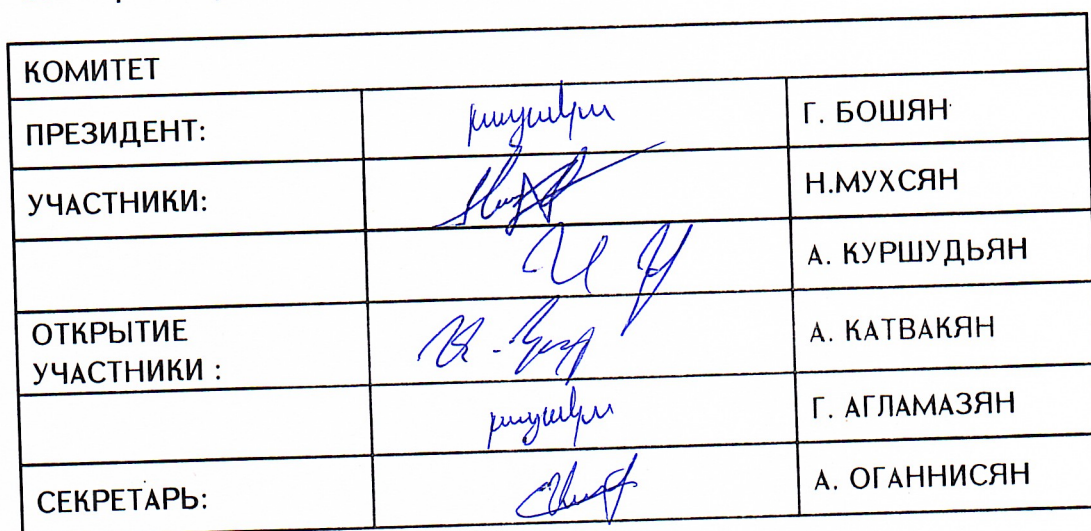 КОМИТЕТ
ПРЕЗИДЕНТ: բացակա Г. БОШЯН
УЧАСТНИКИ: Н.МУХСЯН
А. КУРШУДЬЯН
ОТКРЫТИЕ
УЧАСТНИКИ : А. КАТВАКЯН
բացակա Г. АГЛАМАЗЯН
СЕКРЕТАРЬ: А. ОГАННИСЯН